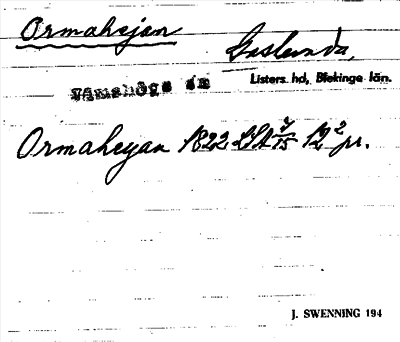 Ormahejan Gaslunda,
Jämshögs sn Listers. hd, Blekinge län.
Ormaheyan 1822 LSA 7/15 12² pr.
J. SWENNING 194